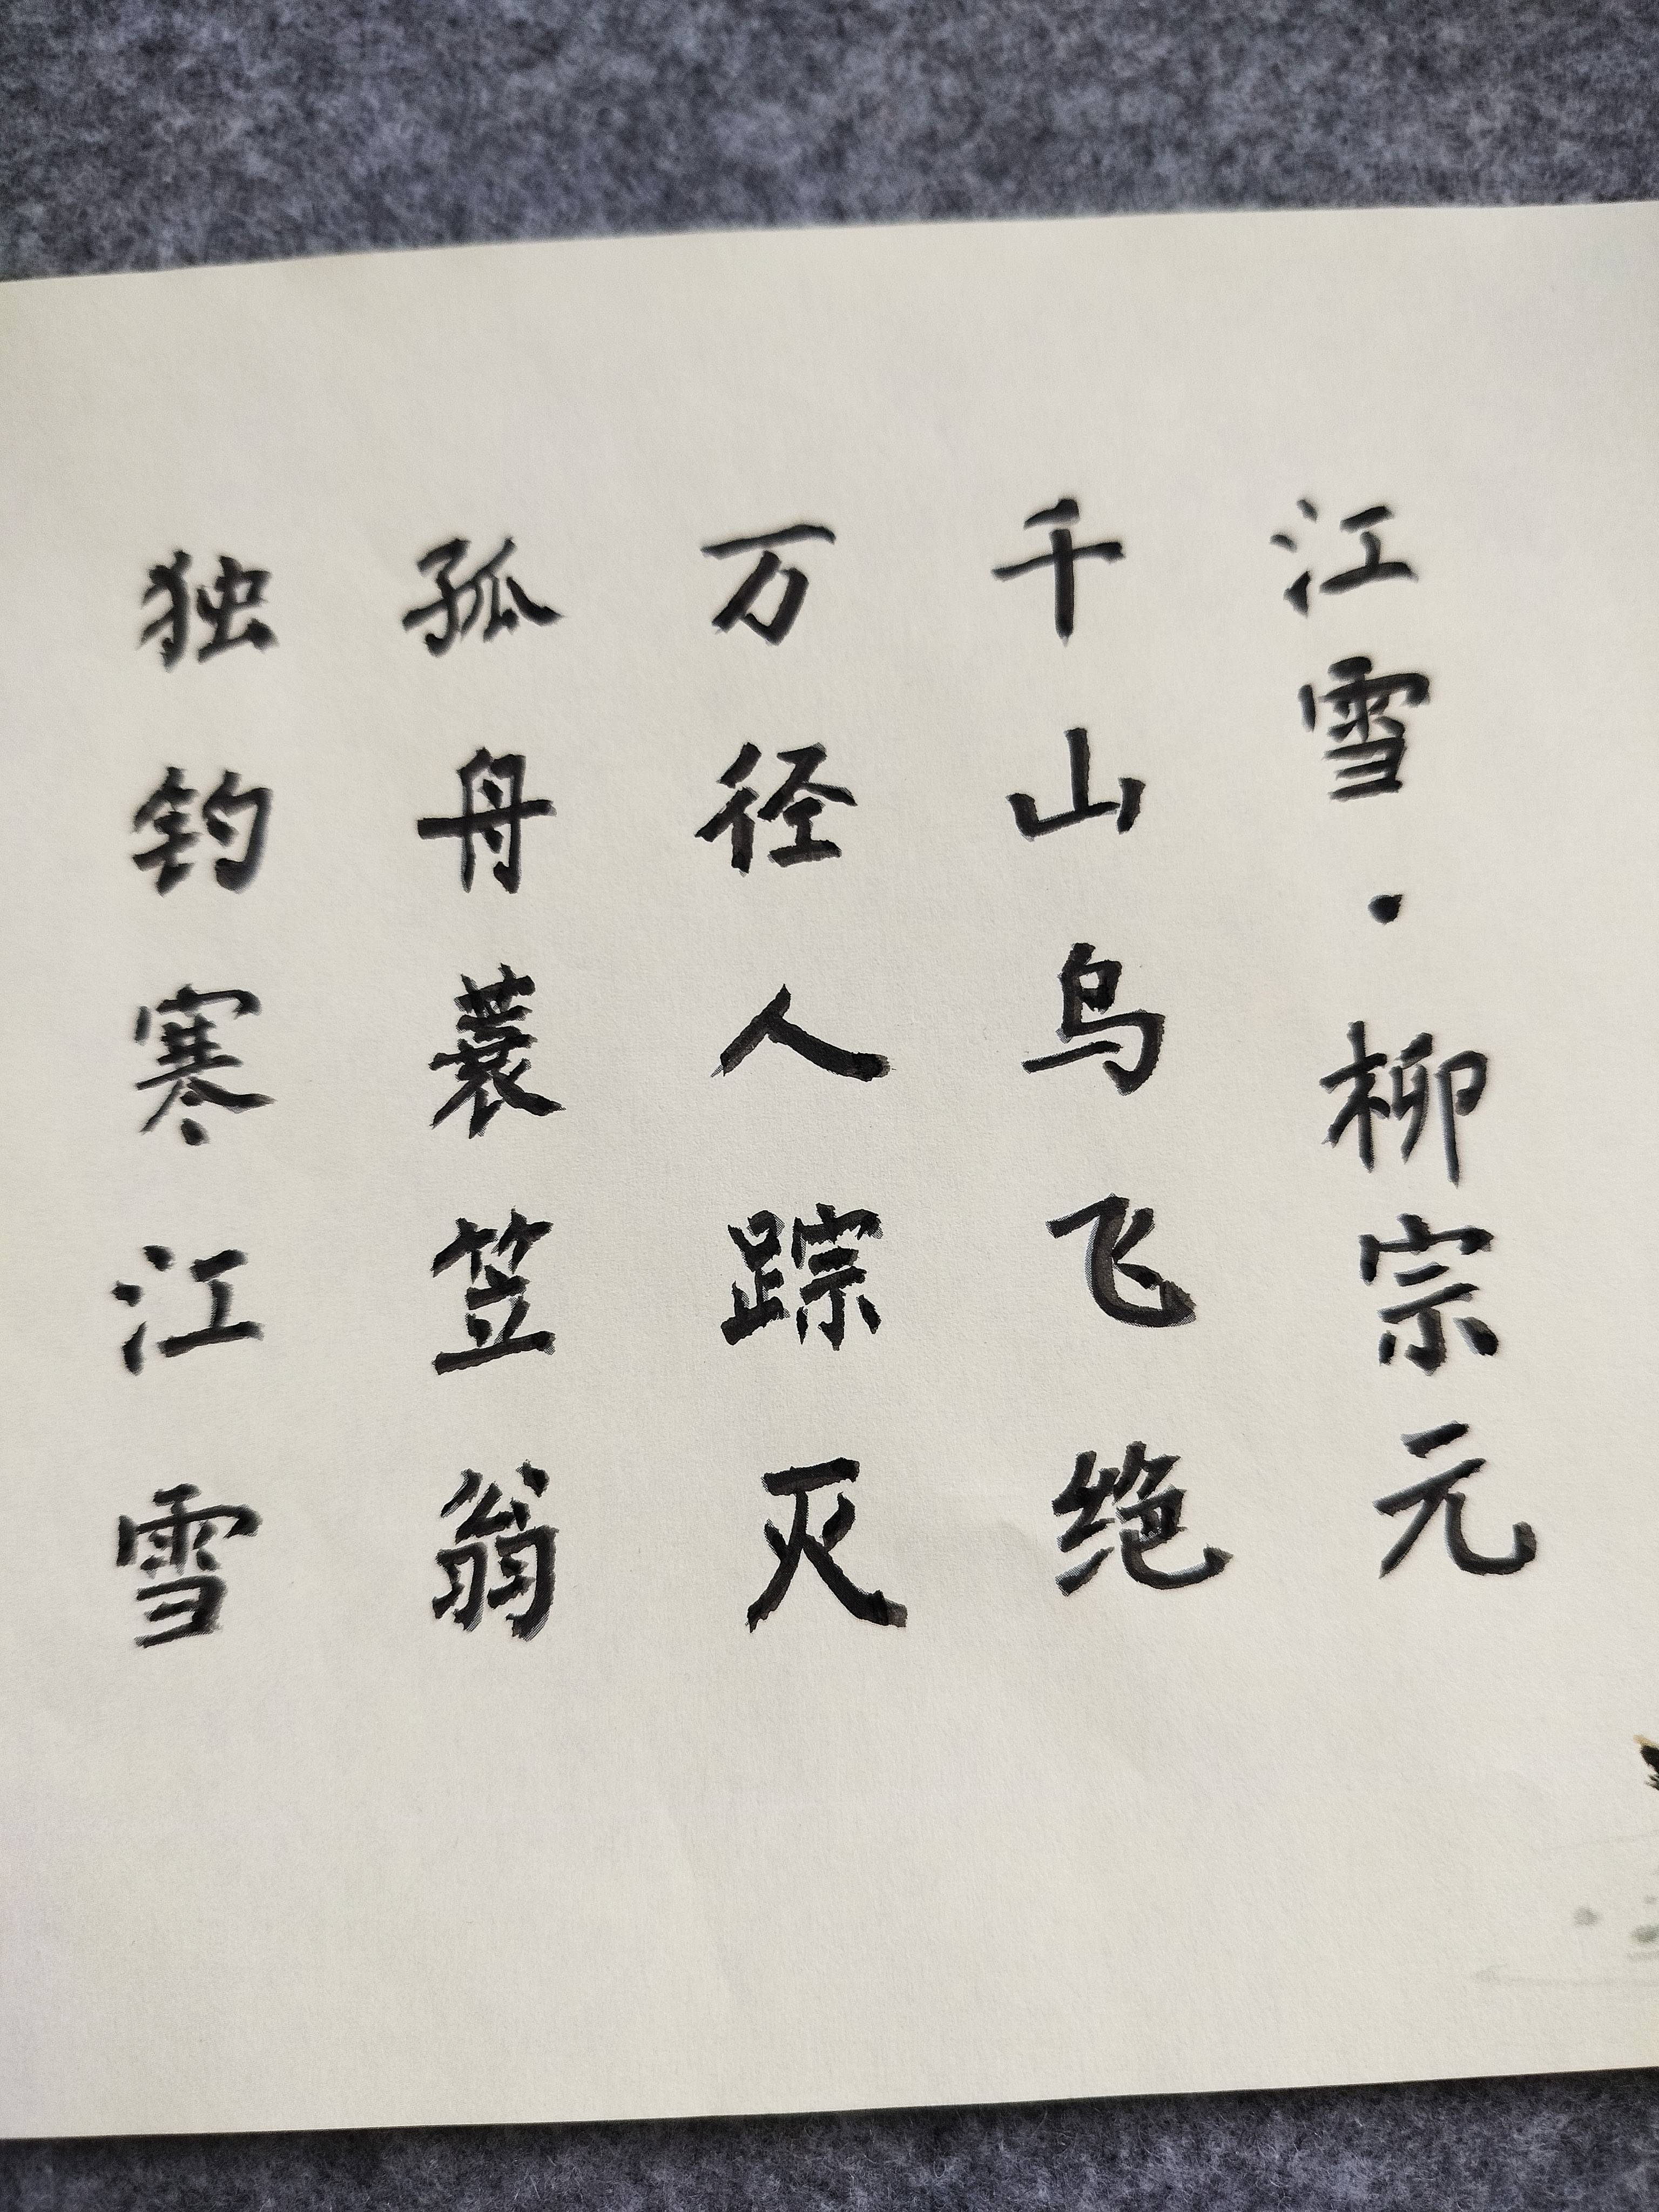 江雪·柳宗元
千山鸟飞绝
万径人踪灭
孤舟蓑笠翁
独钓寒江雪